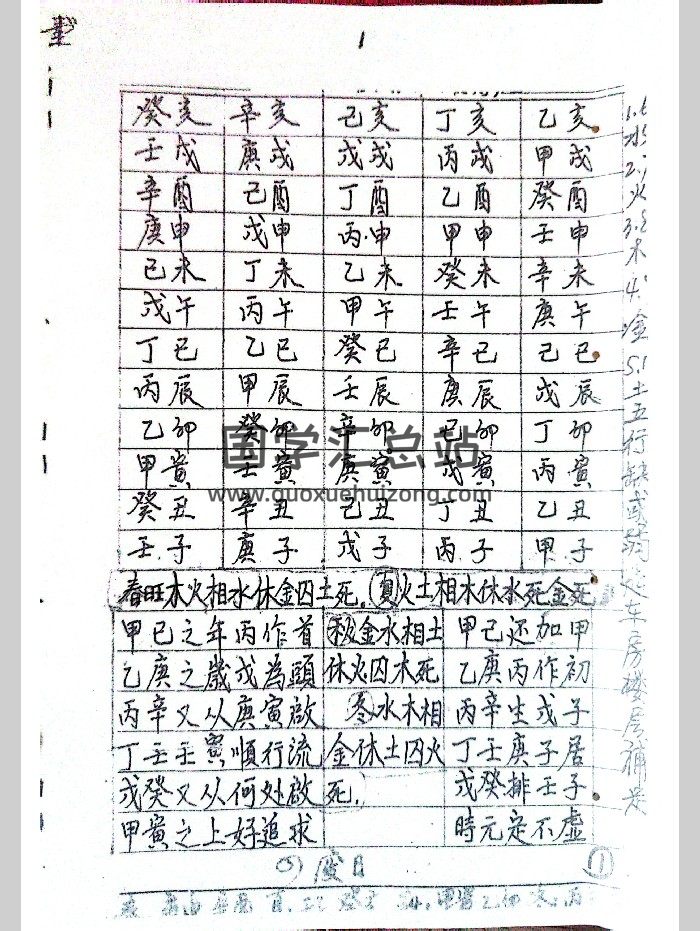 1
癸亥 辛亥 己亥 丁亥 乙亥
壬戌 庚戌 戊戌 丙戌 甲戌
辛酉 己酉 丁酉 乙酉 癸酉
庚申 戊申 丙申 甲申 壬申
己未 丁未 乙未 癸未 辛未
戊午 丙午 甲午 壬午 庚午
丁巳 乙巳 癸巳 辛巳 己巳
丙辰 甲辰 壬辰 庚辰 戊辰
乙卯 癸卯 辛卯 己卯 丁卯
甲寅 壬寅 庚寅 戊寅 丙寅
癸丑 辛丑 己丑 丁丑 乙丑
壬子 庚子 戊子 丙子 甲子
国学汇总站
www.guoxuehuizong.com
春旺木火相水休金囚土死.夏火土相木休水死金死
甲己之年丙作首 秋金水相土 甲己还加甲
乙庚之歲戊為頭 休火囚木死 乙庚丙作初
丙辛又从庚寅啟 冬水木相 丙辛生戊子
丁壬壬寅順行流 金休土囚火 丁壬庚子居
戊癸又从何处啟 死. 戊癸排壬子
甲寅之上好追求 時元定不虚
①
水 2. 火 3. 木 4. 金 5. 土五行缺